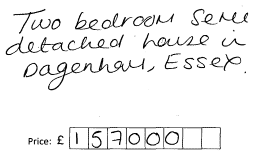 Two bedroom Semi
detached house in
Dagenham, Essex.
Price: £ 157000